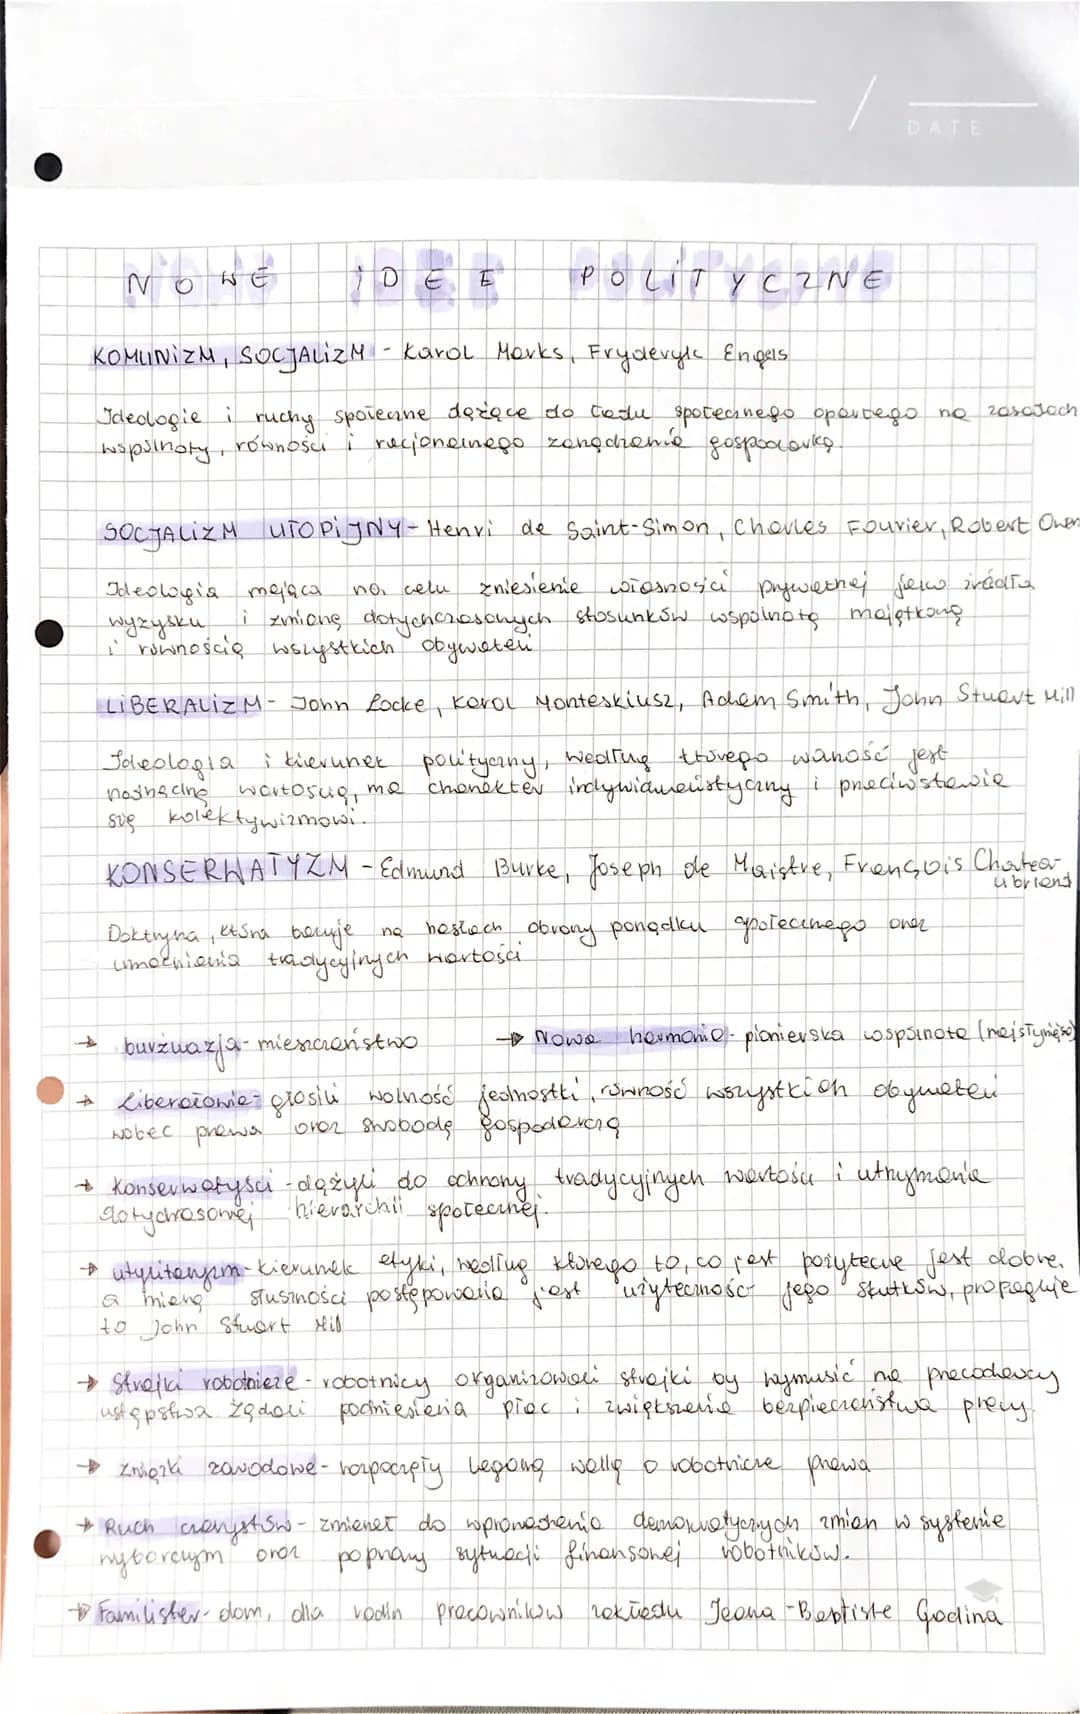 DATE
NOWE IDEE POLITYCZNE
KOMUNIZM, SOCJALIZM - Karol Marks, Fryderyk Engels
Ideologie i ruchy społeczne dążące do ładu społecznego opartego na zasadach
wspólnoty, równości i racjonalnego zarządzania gospodarką.
SOCJALIZM UTOPIJNY - Henri de Saint-Simon, Charles Fourier, Robert Owen
Ideologia mająca na celu zniesienie własności prywatnej jako źródła
wyzysku i zmianę dotychczasowych stosunków wspólnotą majątkową
i równością wszystkich obywateli
LIBERALIZM - John Locke, Karol Monteskiusz, Adam Smith, John Stuart Mill
Ideologia i kierunek polityczny, według którego wolność jest
nadrzędną wartością, ma charakter indywidualistyczny i przeciwstawia
się kolektywizmowi.
KONSERWATYZM - Edmund Burke, Joseph de Maistre, François Chatea-
ubriand
Doktryna, która bazuje na hasłach obrony porządku społecznego oraz
umocnienia tradycyjnych wartości
→ burżuazja - mieszczaństwo
→ Nowa harmonia - pionierska wspólnota (najsłynniejsza)
→ Liberałowie - głosili wolność jednostki, równość wszystkich obywateli
wobec prawa oraz swobodę gospodarczą
→ Konserwatyści - dążyli do ochrony tradycyjnych wartości i utrzymania
dotychczasowej hierarchii społecznej.
→ utylitaryzm - kierunek etyki, według którego to, co jest pożyteczne jest dobre,
a miarą słuszności postępowania jest użyteczność jego skutków, propaguje
to John Stuart Mill
→ Strajki robotnicze - robotnicy organizowali strajki by wymusić na pracodawcy
ustępstwa żądali podniesienia płac i zwiększenia bezpieczeństwa pracy.
→ Związki zawodowe - rozpoczęły legalną walkę o robotnicze prawa
→ Ruch czartystów - zmierzał do wprowadzenia demokratycznych zmian w systemie
wyborczym oraz poprawy sytuacji finansowej robotników.
→ Familister - dom, dla rodzin pracowników zakładu Jeana-Baptiste Godina